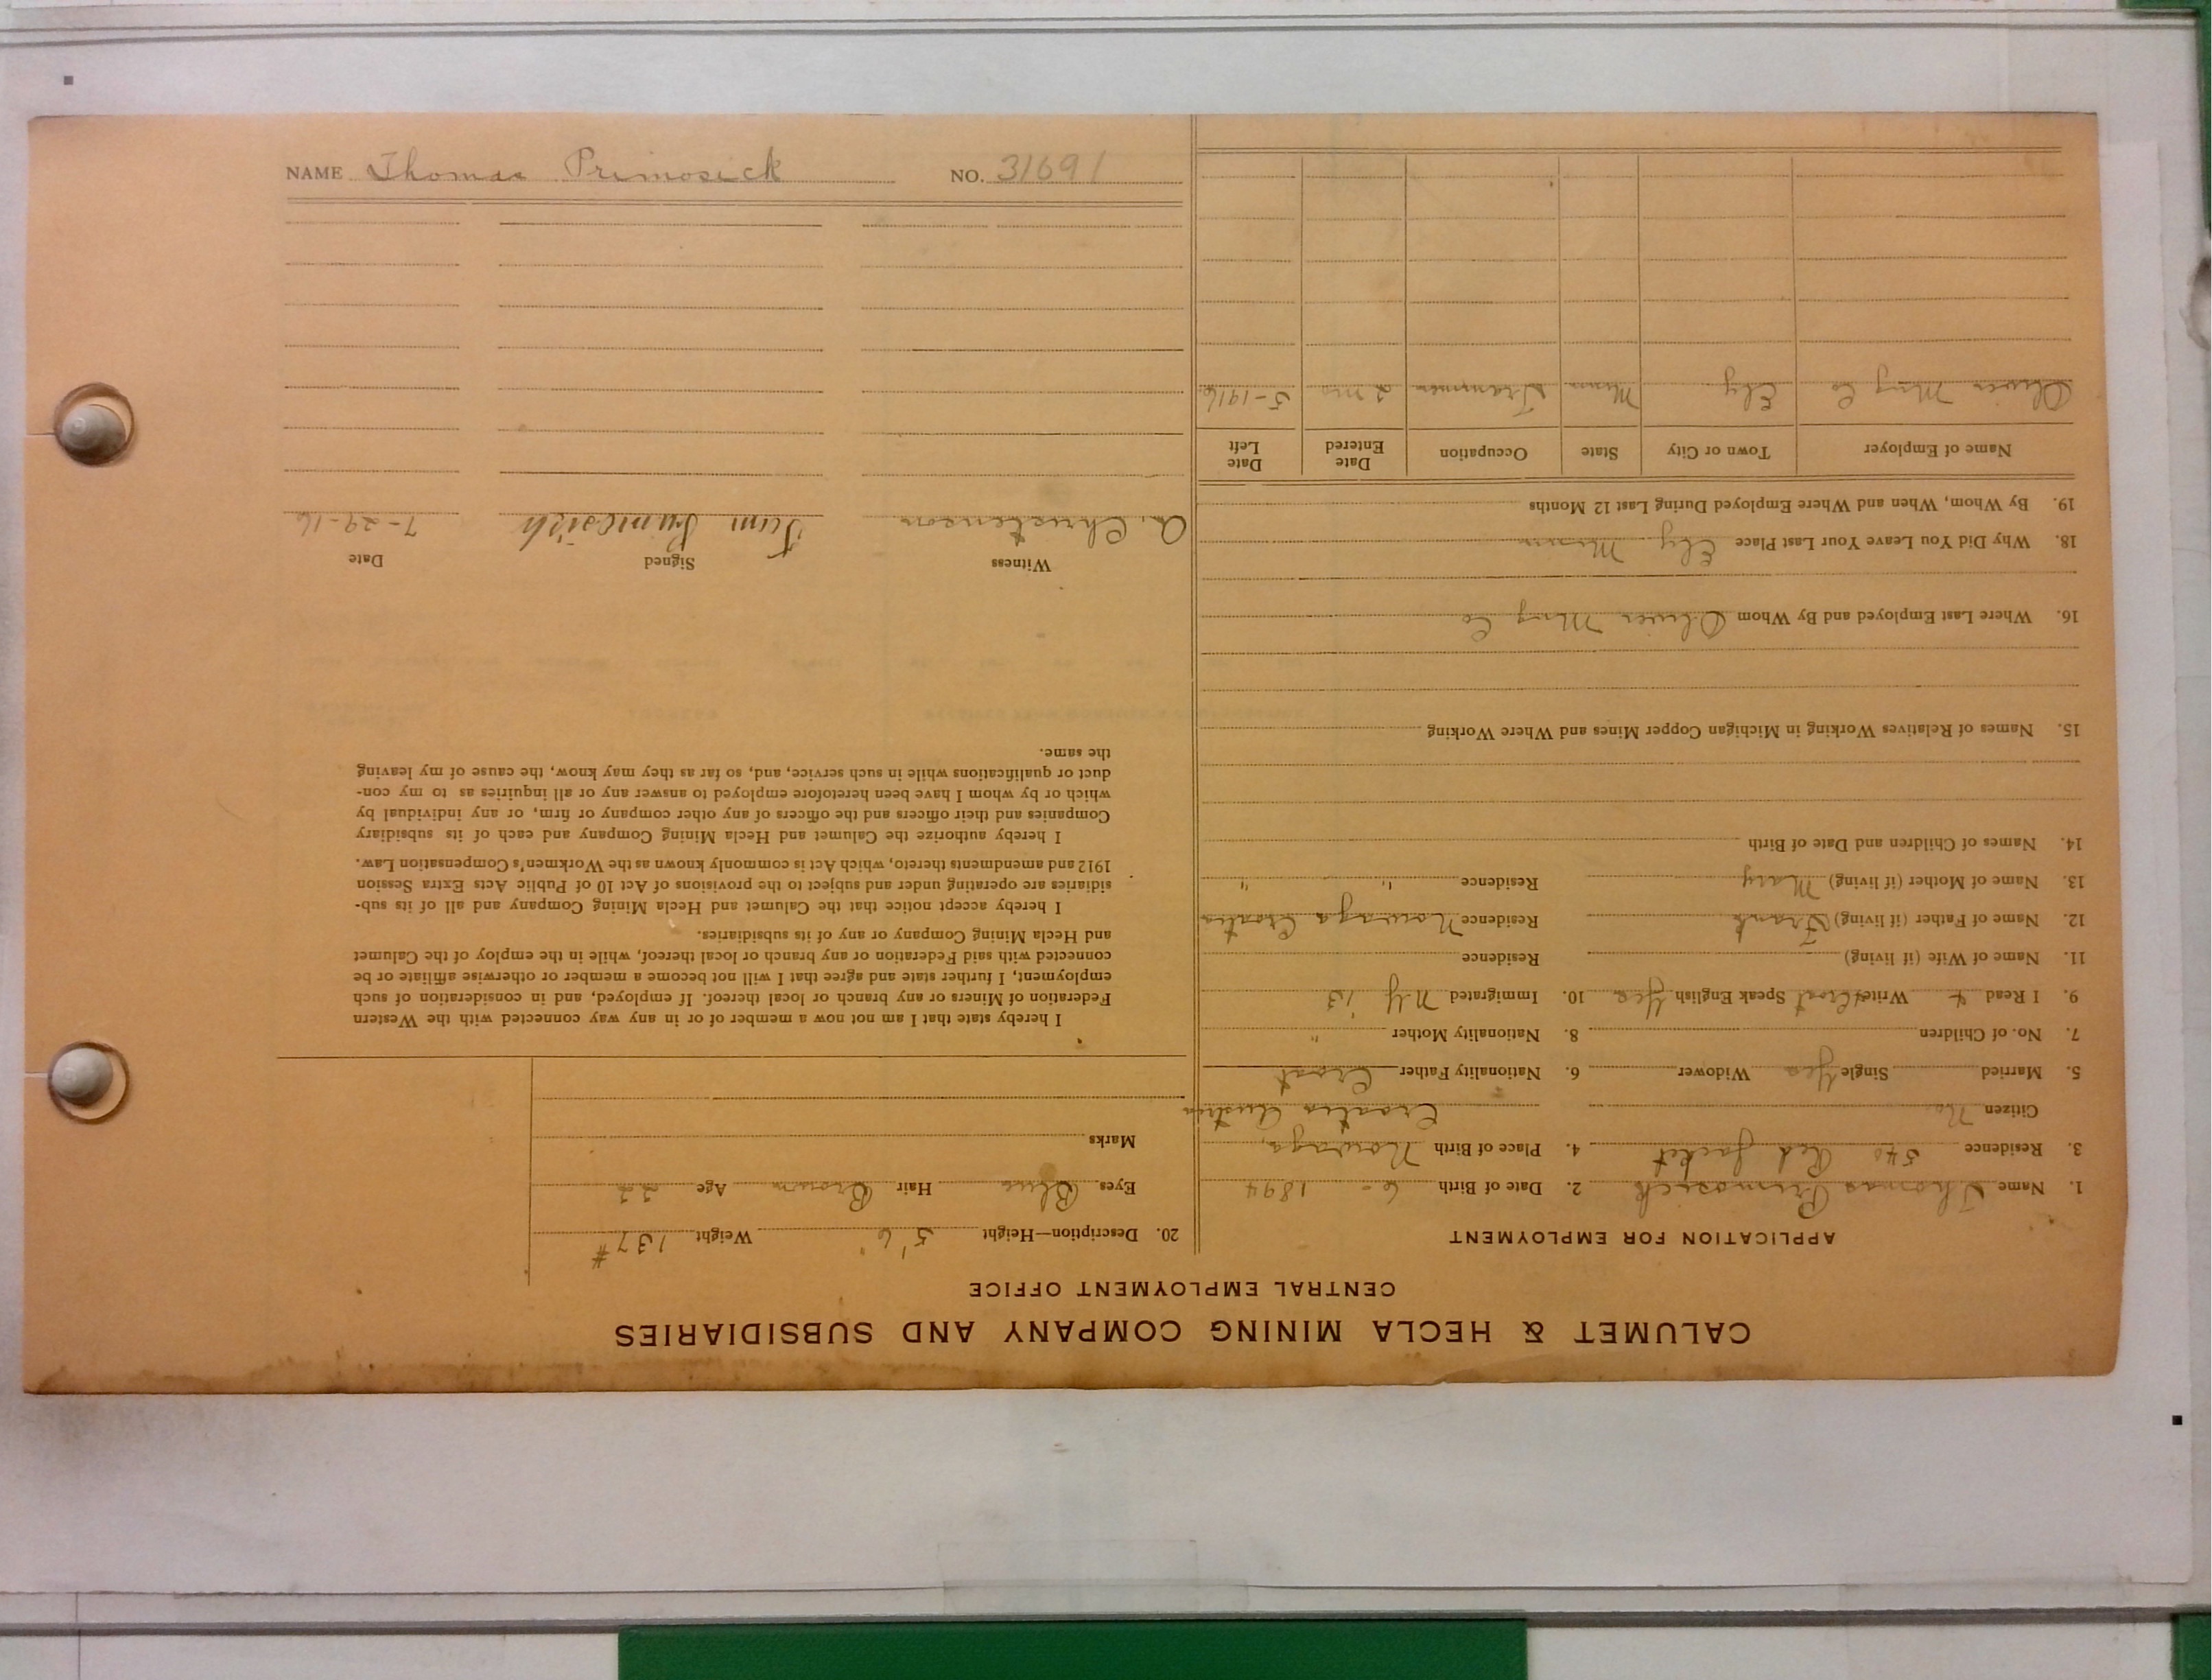 CALUMET & HECLA MINING COMPANY AND SUBSIDIARIES
CENTRAL EMPLOYMENT OFFICE
APPLICATION FOR EMPLOYMENT
1. Name Thomas Primosick 2. Date of Birth 6 - 1894
3. Residence 540 Red Jacket 4. Place of Birth Nowraga,
Citizen No Croatia Austria
5. Married Single Yes Widower 6. Nationality Father Croat
7. No. of Children 8. Nationality Mother "
9. I Read + Write Croat Speak English Yes 10. Immigrated N Y 13
11. Name of Wife (if living) Residence
12. Name of Father (if living) Frank Residence Nowraga Croatia
13. Name of Mother (if living) Mary Residence " "
14. Names of Children and Date of Birth
15. Names of Relatives Working in Michigan Copper Mines and Where Working
16. Where Last Employed and By Whom Oliver Mng Co
18. Why Did You Leave Your Last Place Ely Minn
19. By Whom, When and Where Employed During Last 12 Months
Name of Employer Town or City State Occupation Date Entered Date Left
Oliver Mng Co Ely Minn Trammer 2 mo 5-1916
20. Description—Height 5' 6" Weight 137 #
Eyes Blue Hair Brown Age 22
Marks
I hereby state that I am not now a member of or in any way connected with the Western
Federation of Miners or any branch or local thereof. If employed, and in consideration of such
employment, I further state and agree that I will not become a member or otherwise affiliate or be
connected with said Federation or any branch or local thereof, while in the employ of the Calumet
and Hecla Mining Company or any of its subsidiaries.
I hereby accept notice that the Calumet and Hecla Mining Company and all of its sub-
sidiaries are operating under and subject to the provisions of Act 10 of Public Acts Extra Session
1912 and amendments thereto, which Act is commonly known as the Workmen's Compensation Law.
I hereby authorize the Calumet and Hecla Mining Company and each of its subsidiary
Companies and their officers and the officers of any other company or firm, or any individual by
which or by whom I have been heretofore employed to answer any or all inquiries as to my con-
duct or qualifications while in such service, and, so far as they may know, the cause of my leaving
the same.
Witness Signed Date
A. Christenson Tum Primosich 7-29-16
NAME Thomas Primosick NO. 31691